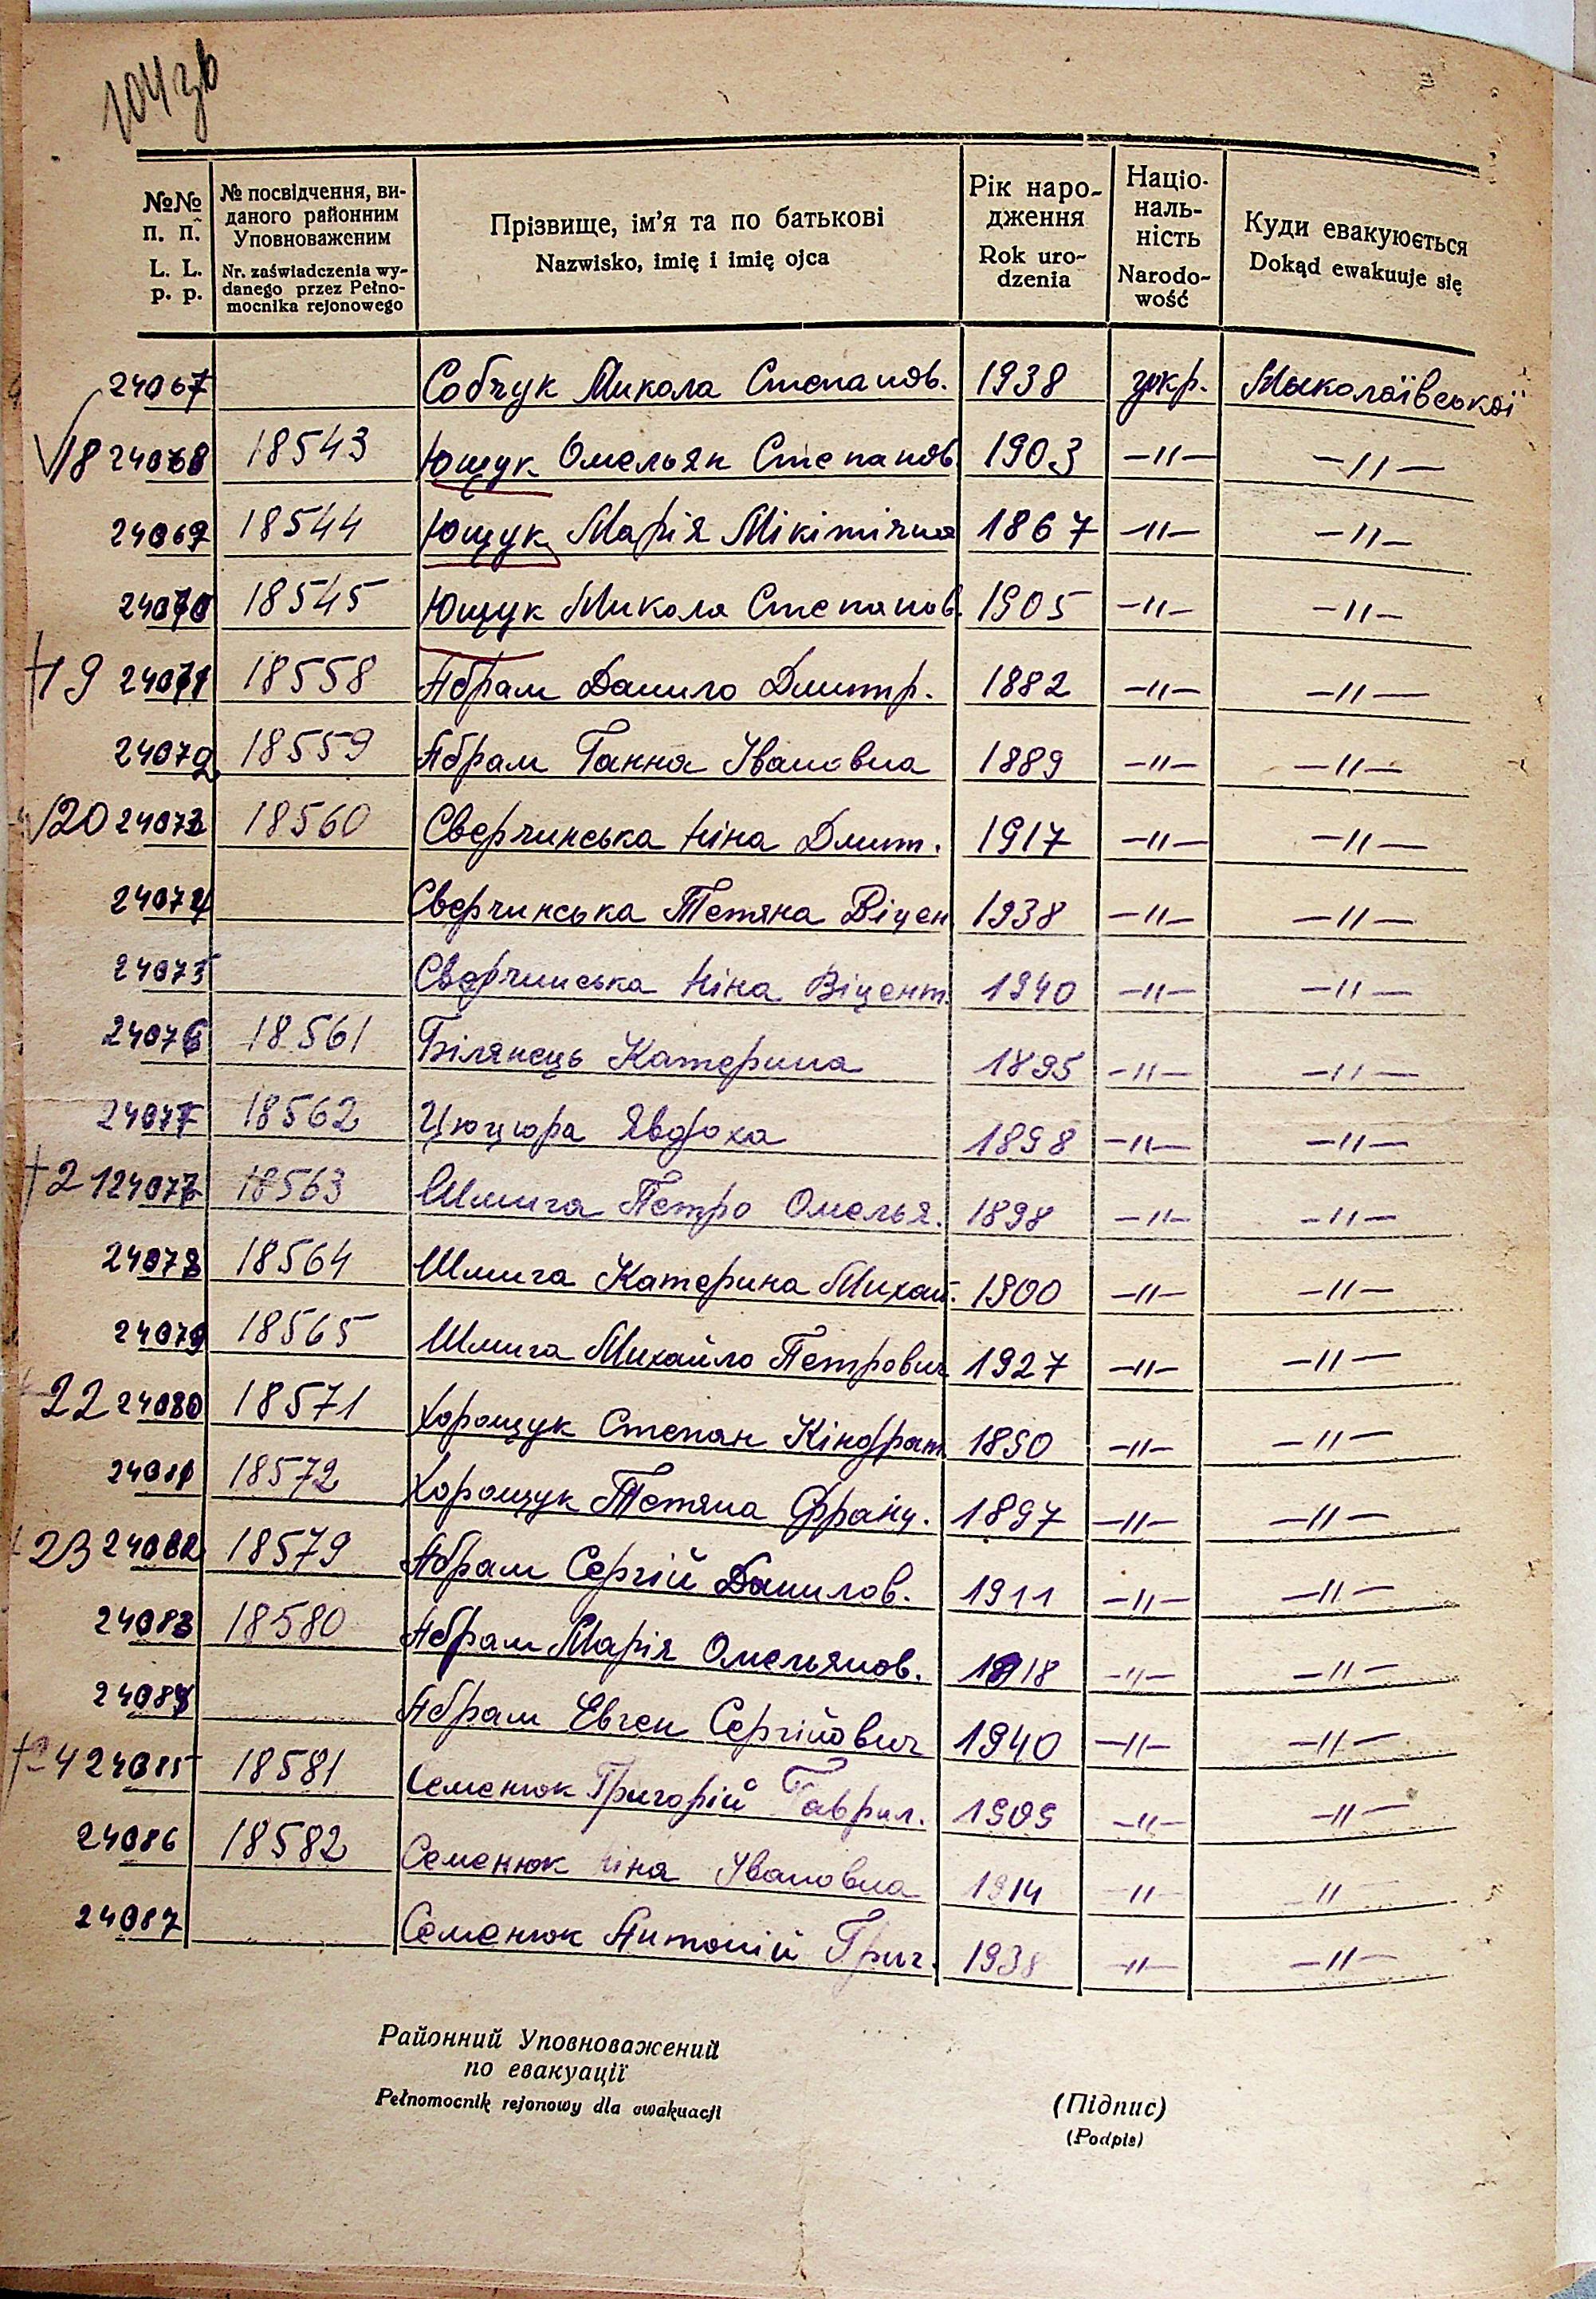 104зв
№№ п. п. L. L. p. p.
№ посвідчення, виданого районним Уповноваженим Nr. zaświadczenia wydanego przez Pełnomocnika rejonowego
Прізвище, ім'я та по батькові Nazwisko, imię i imię ojca
Рік народження Rok urodzenia
Національність Narodowość
Куди евакуюється Dokąd ewakuuje się
24067 Собчук Микола Степанов. 1938 укр. Миколаївської
18 24068 18543 Ющук Омельян Степанов 1903 -"- -"-
24069 18544 Ющук Марія Мікітічна 1867 -"- -"-
24070 18545 Ющук Микола Степанов. 1905 -"- -"-
19 24071 18558 Абрам Данило Дмитр. 1882 -"- -"-
24072 18559 Абрам Ганна Івановна 1889 -"- -"-
20 24073 18560 Сверчинська Ніна Дмит. 1917 -"- -"-
24074 Сверчинська Тетяна Віцен 1938 -"- -"-
24075 Сверчинська Ніна Віцент 1940 -"- -"-
24076 18561 Білянець Катерина 1895 -"- -"-
24077 18562 Цюцюра Явдоха 1898 -"- -"-
21 24077 18563 Шмига Петро Омелья. 1898 -"- -"-
24078 18564 Шмига Катерина Михай. 1900 -"- -"-
24079 18565 Шмига Михайло Петрович 1927 -"- -"-
22 24080 18571 Хорощук Степан Кіндрат 1890 -"- -"-
24081 18572 Хорощук Тетяна Франц. 1897 -"- -"-
23 24082 18579 Абрам Сергій Данилов. 1911 -"- -"-
24083 18580 Абрам Марія Омельянов. 1918 -"- -"-
24084 Абрам Евген Сергійович 1940 -"- -"-
24 24085 18581 Семенюк Григорій Гаврил. 1909 -"- -"-
24086 18582 Семенюк Ніна Івановна 1914 -"- -"-
24087 Семенюк Антоній Григ. 1938 -"- -"-
Районний Уповноважений
по евакуації
Pełnomocnik rejonowy dla ewakuacji
(Підпис)
(Podpis)